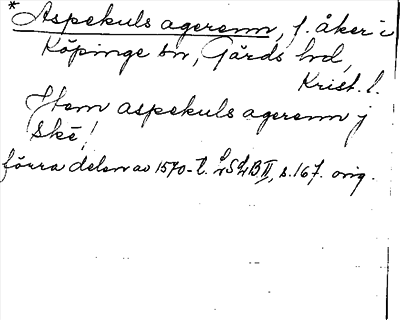 * Aspekuls agerenn, f. åker i
Köpinge sn, Gärds hd,
Krist. l.
Item aspekuls agerenn j
Ske!
förra delen av 1570-t. LSB II, s. 167. orig.